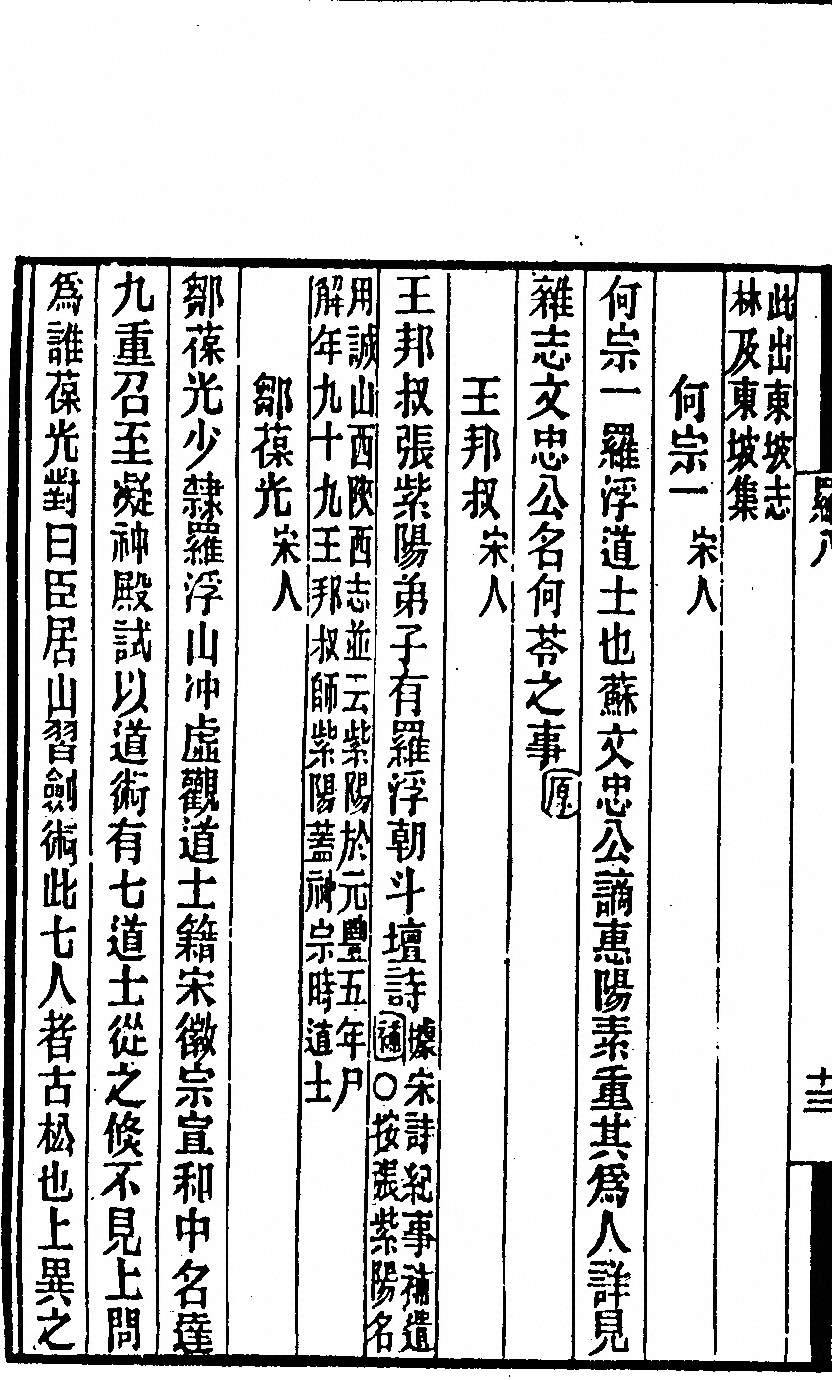 羅八
十三
此出東坡志
林及東坡集
何宗一 宋人
何宗一羅浮道士也蘇文忠公謫惠陽素重其爲人詳見
雜志文忠公名何苓之事原
王邦叔 宋人
王邦叔張紫陽弟子有羅浮朝斗壇詩據宋詩紀事補遺
補○按張紫陽名
用誠山西陝西志並云紫陽於元豐五年尸
解年九十九王邦叔師紫陽蓋神宗時道士
鄒葆光 宋人
鄒葆光少隸羅浮山冲虛觀道士籍宋徽宗宣和中名達
九重召至凝神殿試以道術有七道士從之倐不見上問
爲誰葆光對曰臣居山習劍術此七人者古松也上異之